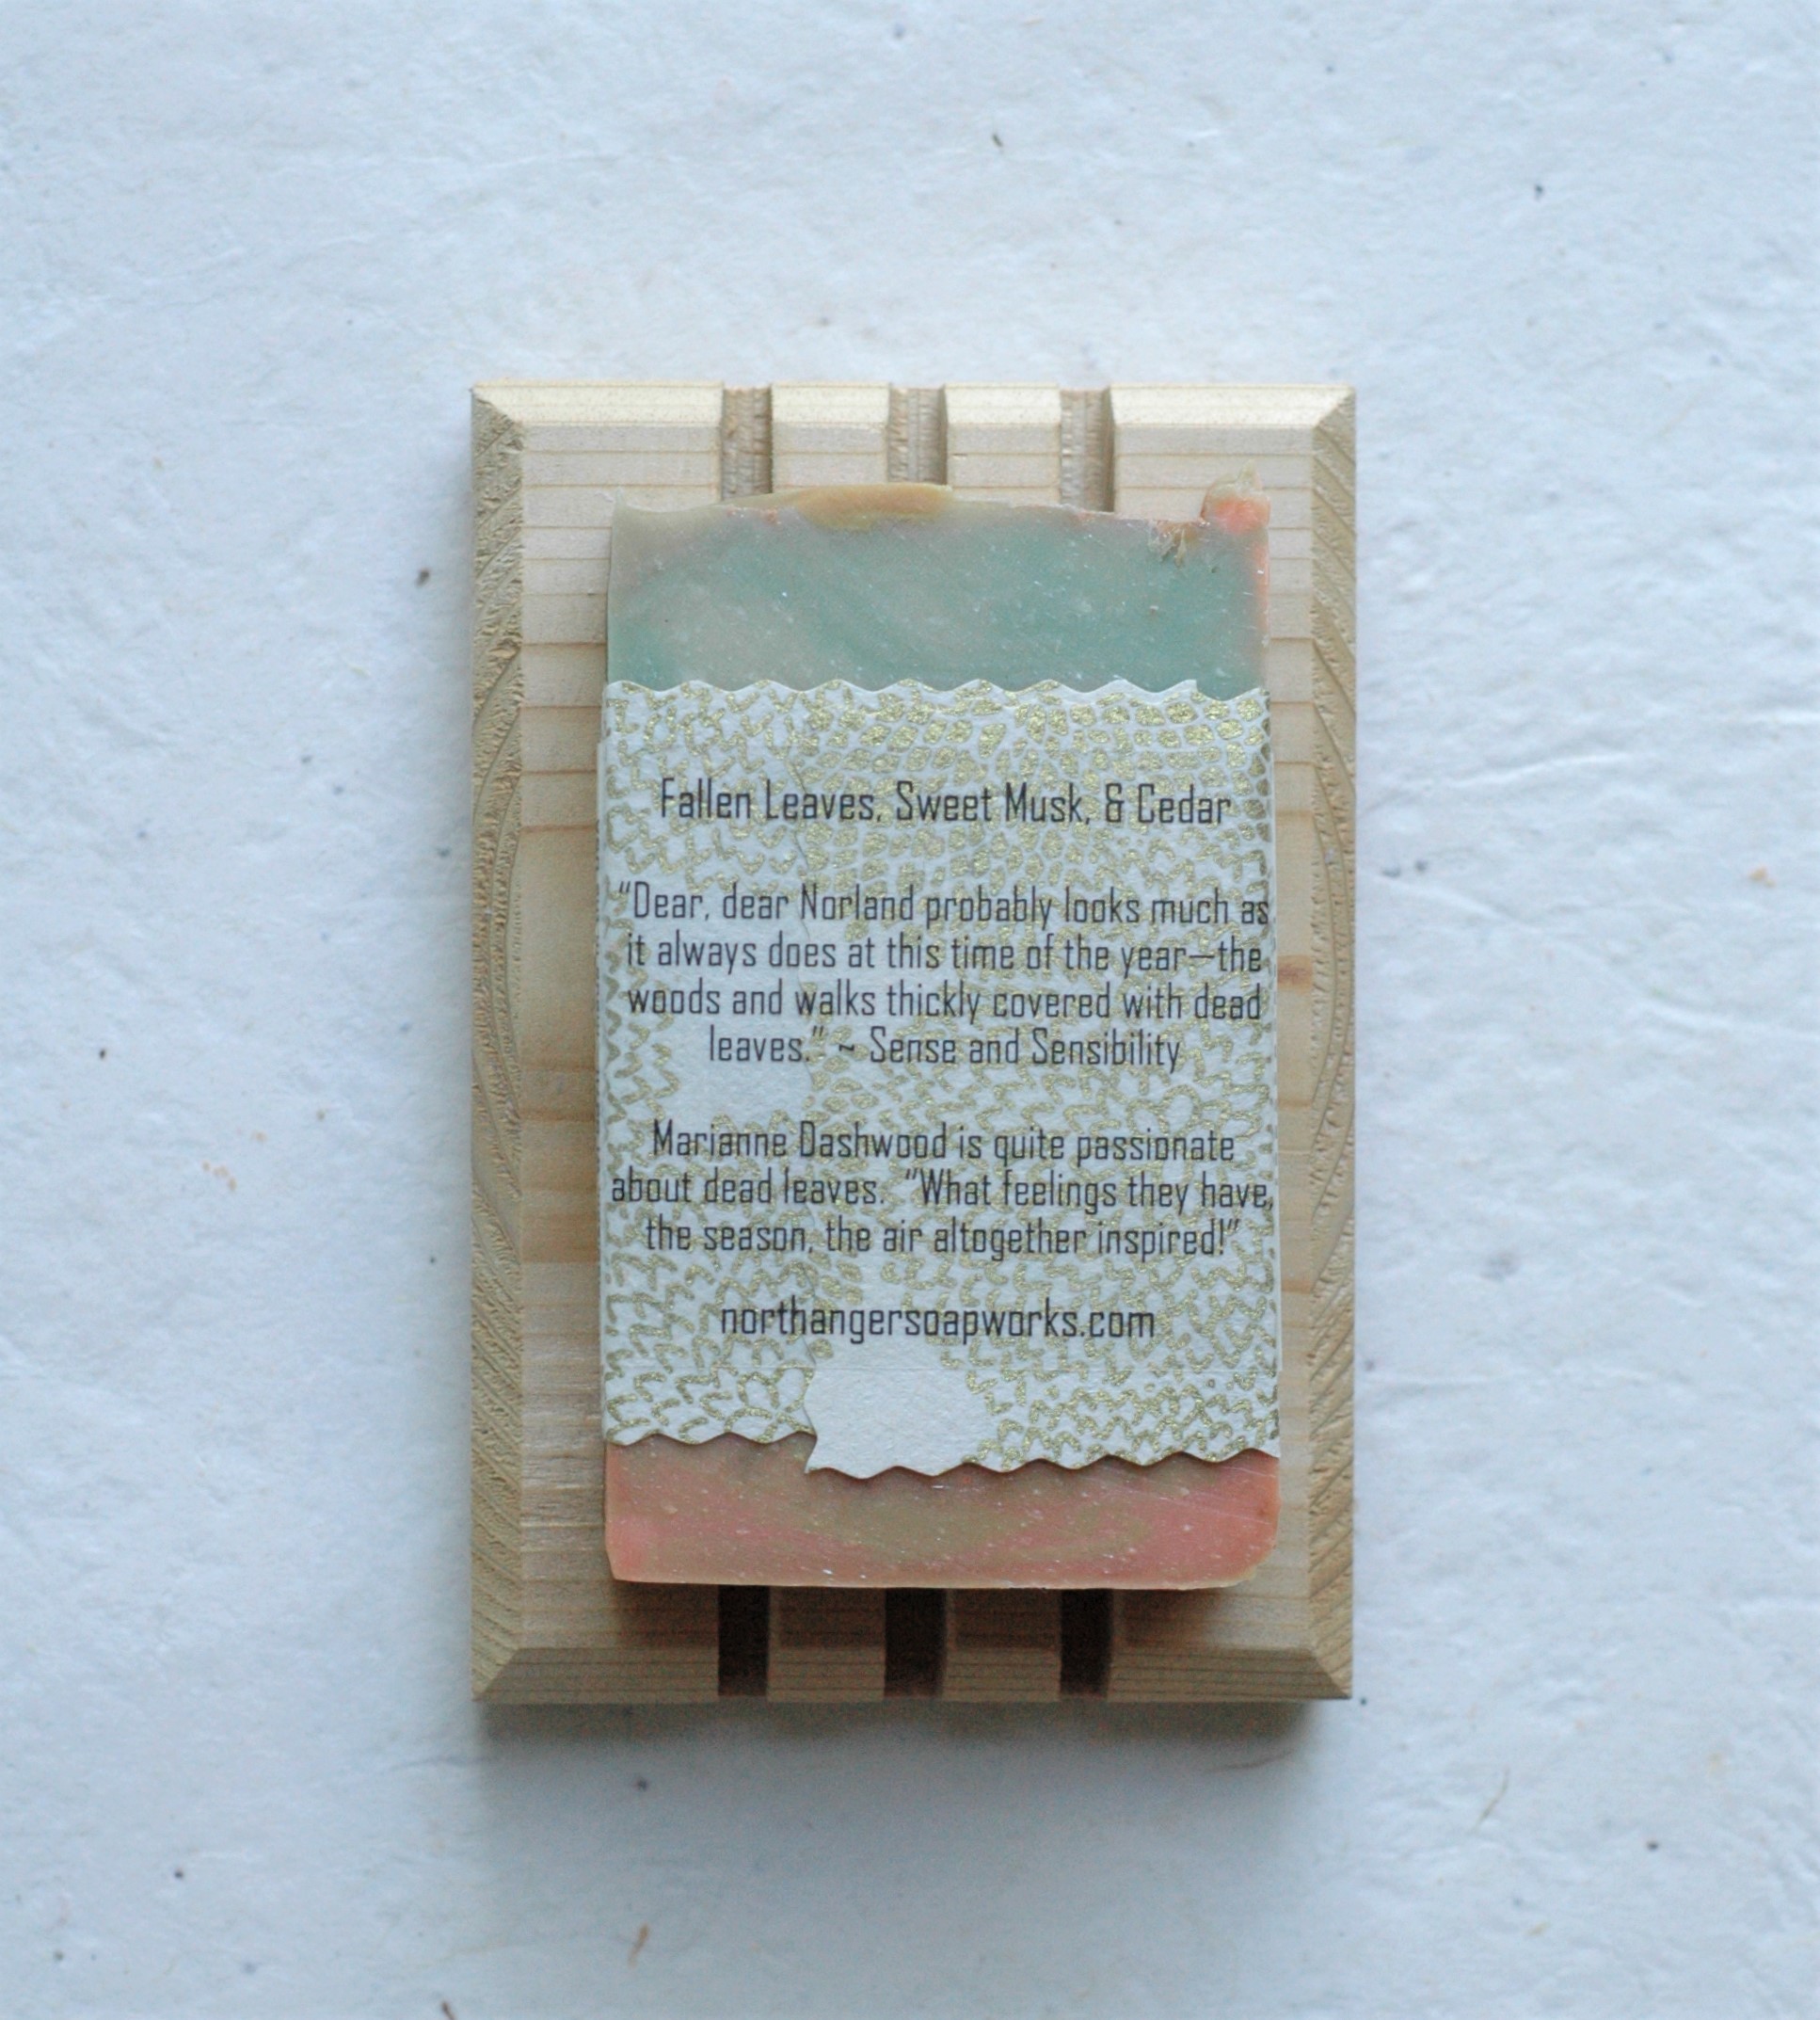 Fallen Leaves, Sweet Musk, & Cedar
“Dear, dear Norland probably looks much as
it always does at this time of the year—the
woods and walks thickly covered with dead
leaves.” ~ Sense and Sensibility
Marianne Dashwood is quite passionate
about dead leaves. “What feelings they have,
the season, the air altogether inspired!”
northangersoapworks.com